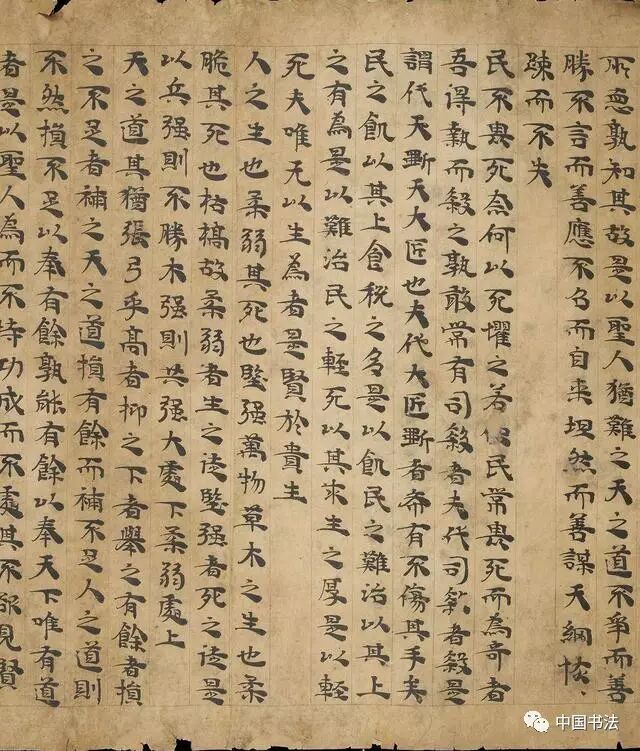 所惡孰知其故是以聖人猶難之天之道不爭而善
勝不言而善應不召而自来坦然而善謀天網恢〻
踈而不失
民不畏死柰何以死懼之若使民常畏死而為奇者
吾得執而殺之孰敢常有司殺者夫代司殺者殺是
謂代天斲天大匠也夫代大匠斲者希有不傷其手矣
民之飢以其上食稅之多是以飢民之難治以其上
之有為是以難治民之輕死以其求生之厚是以輕
死夫唯无以生為者是賢於貴生
人之生也柔弱其死也堅强萬物草木之生也柔
脆其死也枯槁故柔弱者生之徒堅强者死之徒是
以兵强則不勝木强則共强大處下柔弱處上
天之道其猶張弓乎高者抑之下者舉之有餘者損
之不足者補之天之道損有餘而補不足人之道則
不然損不足以奉有餘孰能有餘以奉天下唯有道
者是以聖人為而不恃功成而不處其不欲見賢
中国书法